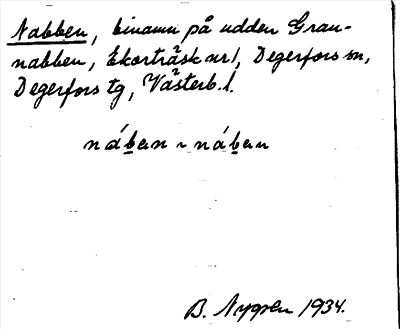 Nabben, binamn på udden Gran-
nabben, Ekorträsk nr 1, Degerfors sn,
Degerfors tg, Västerb. l.
nábɛn ~ nábɛn
B. Nygren 1934.